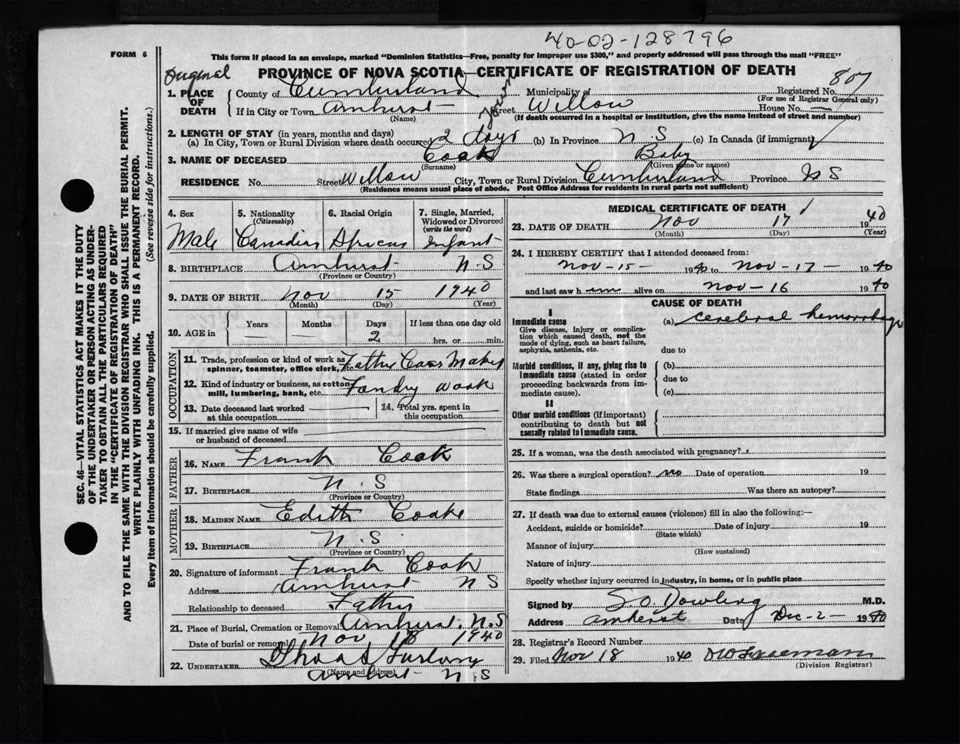 40-02-128796
FORM 6
This form if placed in an envelope, marked "Dominion Statistics—Free, penalty for improper use $300," and properly addressed will pass through the mail "FREE"
Original
PROVINCE OF NOVA SCOTIA—CERTIFICATE OF REGISTRATION OF DEATH
807
SEC. 46—VITAL STATISTICS ACT MAKES IT THE DUTY
OF THE UNDERTAKER OR PERSON ACTING AS UNDER-
TAKER TO OBTAIN ALL THE PARTICULARS REQUIRED
IN THE "CERTIFICATE OF REGISTRATION OF DEATH"
AND TO FILE THE SAME WITH THE DIVISION REGISTRAR WHO SHALL ISSUE THE BURIAL PERMIT.
WRITE PLAINLY WITH UNFADING INK. THIS IS A PERMANENT RECORD.
Every item of information should be carefully supplied. (See reverse side for instructions.)
1. PLACE OF DEATH
County of Cumberland Municipality of Registered No.
(For use of Registrar General only)
If in City or Town Amherst Street Willow House No.
(Name) (If death occurred in a hospital or institution, give the name instead of street and number)
2. LENGTH OF STAY (in years, months and days)
(a) In City, Town or Rural Division where death occurred 2 days (b) In Province N.S (c) In Canada (if immigrant)
3. NAME OF DECEASED Cook Baby
(Surname) (Given name or names)
RESIDENCE No. Street Willow City, Town or Rural Division Cumberland Province NS
(Residence means usual place of abode. Post Office Address for residents in rural parts not sufficient)
4. Sex Male
5. Nationality (Citizenship) Canadian
6. Racial Origin African
7. Single, Married, Widowed or Divorced (write the word) Infant
8. BIRTHPLACE Amherst N S
(Province or Country)
9. DATE OF BIRTH Nov 15 1940
(Month) (Day) (Year)
10. AGE in Years Months Days 2 If less than one day old hrs. or min.
OCCUPATION
11. Trade, profession or kind of work as spinner, teamster, office clerk, Father
12. Kind of industry or business, as cotton mill, lumbering, bank, etc. work
13. Date deceased last worked at this occupation
14. Total yrs. spent in this occupation
15. If married give name of wife or husband of deceased
FATHER
16. NAME Frank Cook
17. BIRTHPLACE N.S
(Province or Country)
MOTHER
18. MAIDEN NAME Edith
19. BIRTHPLACE N.S.
(Province or Country)
20. Signature of informant Frank Cook
Address Amherst N S
Relationship to deceased Father
21. Place of Burial, Cremation or Removal Amherst N.S
Date of burial or removal Nov 18 1940
22. UNDERTAKER
(Name and Address) Amherst N S
MEDICAL CERTIFICATE OF DEATH
23. DATE OF DEATH Nov 17 1940
(Month) (Day) (Year)
24. I HEREBY CERTIFY that I attended deceased from
Nov-15- 1940 to Nov-17- 1940
and last saw h im alive on Nov-16 1940
CAUSE OF DEATH
I
Immediate cause (a) cerebral hemorrhage
Give disease, injury or complication which caused death, not the mode of dying, such as heart failure, asphyxia, asthenia, etc.
due to
Morbid conditions, if any, giving rise to immediate cause (stated in order proceeding backwards from immediate cause).
(b)
due to
(c)
II
Other morbid conditions (if important) contributing to death but not causally related to immediate cause.
25. If a woman, was the death associated with pregnancy?
26. Was there a surgical operation? no Date of operation 19
State findings Was there an autopsy?
27. If death was due to external causes (violence) fill in also the following:—
Accident, suicide or homicide? Date of injury 19
(State which)
Manner of injury
(How sustained)
Nature of injury
Specify whether injury occurred in industry, in home, or in public place
Signed by Dowling M.D.
Address Amherst Date Dec-2- 1940
28. Registrar's Record Number
29. Filed Nov 18 1940
(Division Registrar)